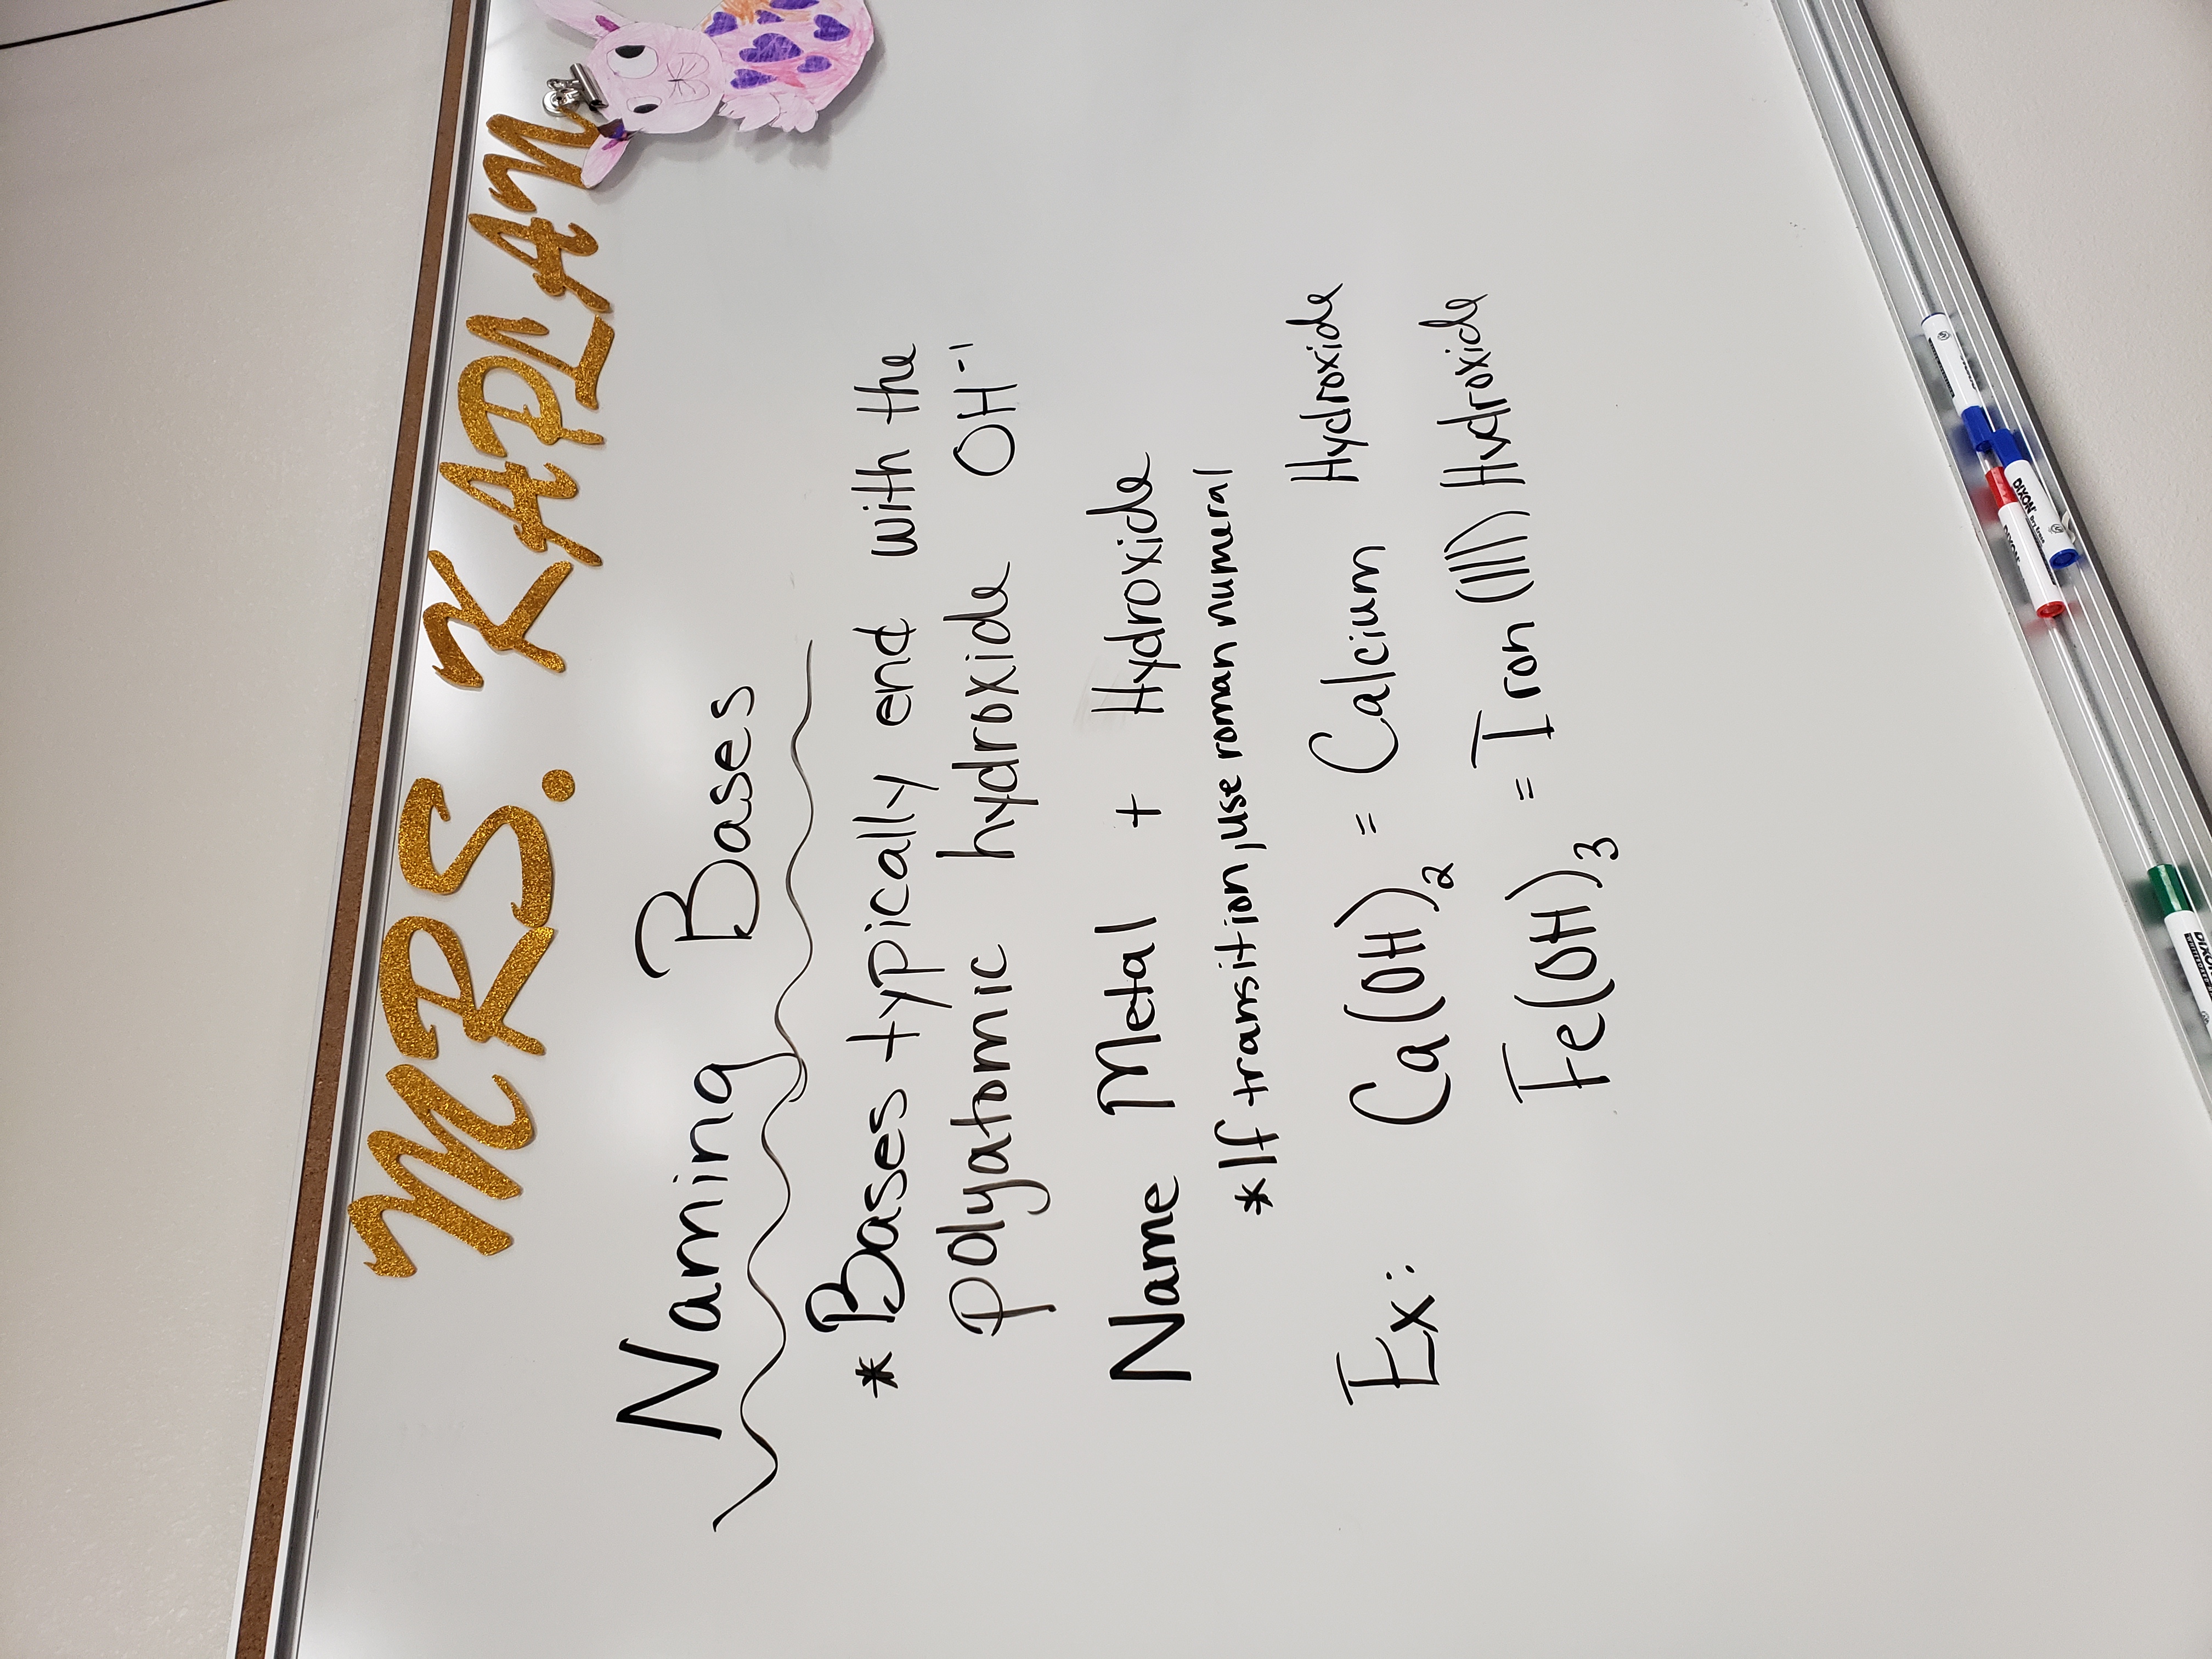 MRS. KAPLAN
Naming Bases
* Bases typically end with the
polyatomic hydroxide OH⁻¹
Name Metal + Hydroxide
*If transition, use roman numeral
Ex: Ca(OH)₂ = Calcium Hydroxide
Fe(OH)₃ = Iron (III) Hydroxide
DIXON
DIXON